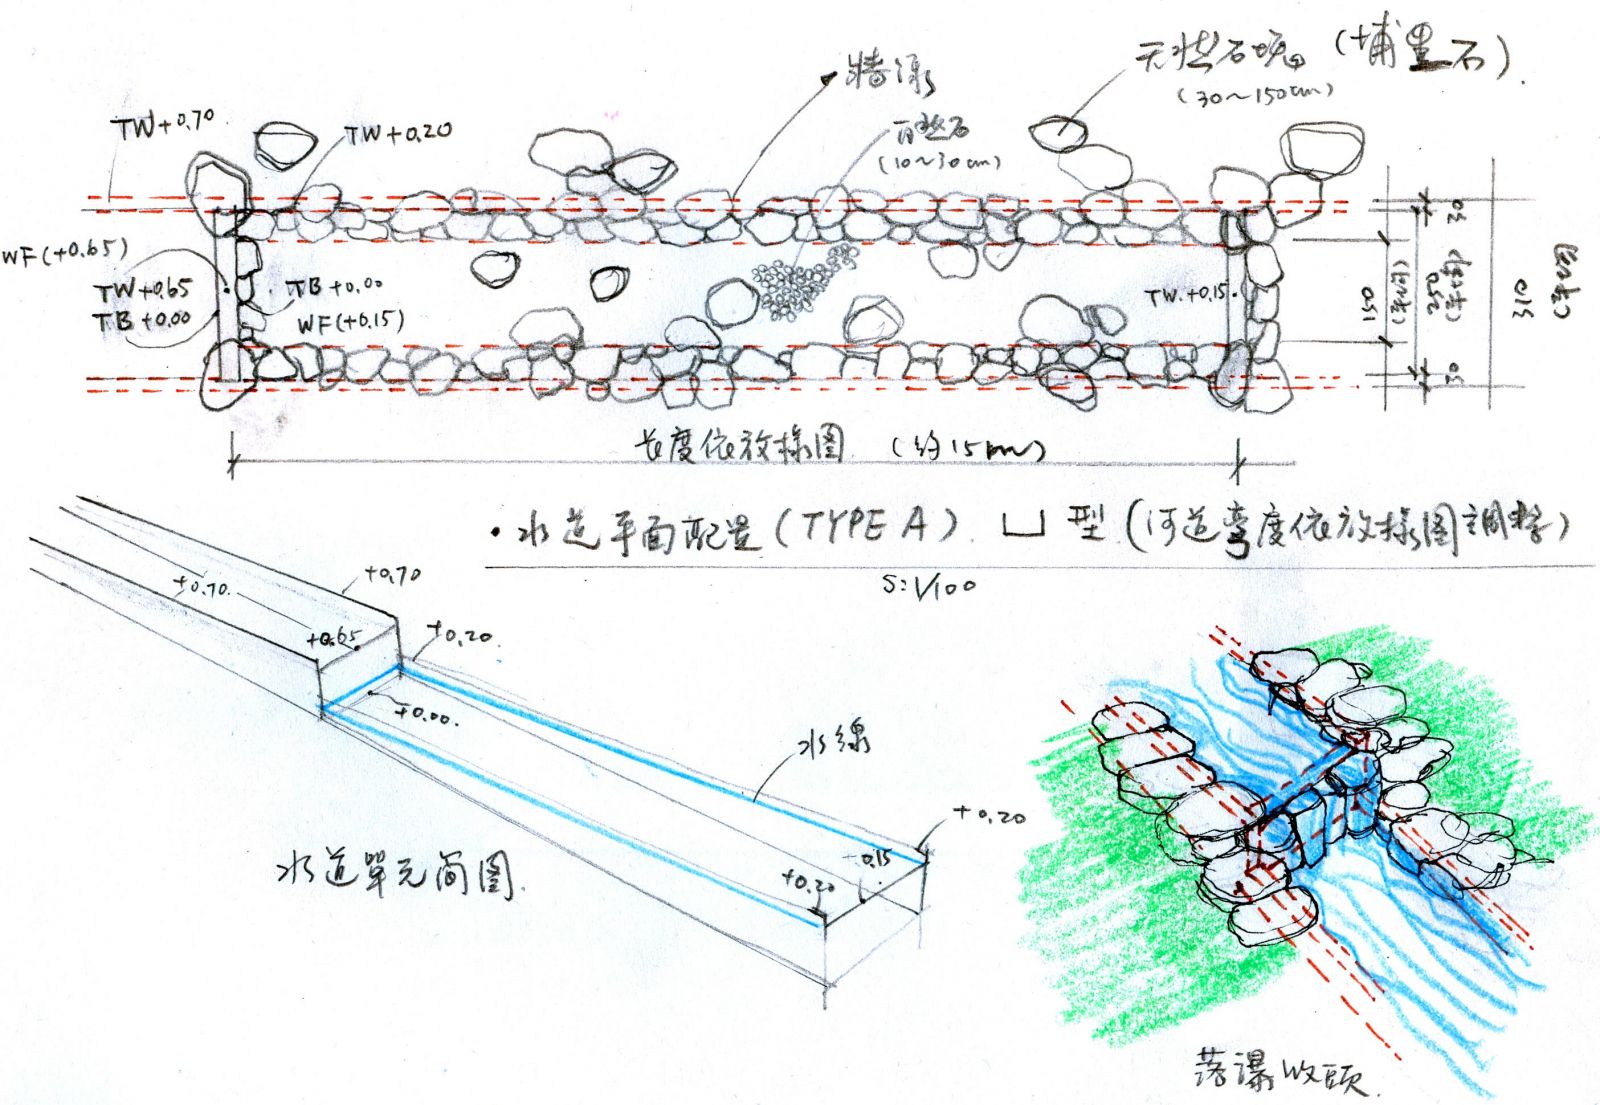 天然石塊(埔里石)
(30~150cm)
牆緣
(10~30cm)
TW+0.70
TW+0.20
WF(+0.65)
TW+0.65
TB+0.00
TB+0.00
WF(+0.15)
TW.+0.15
30
150
250
30
310
长度依放樣图 (约15m)
•水道平面配置(TYPE A). 凵型(河道彎度依放樣图調整)
S:1/100
+0.70
+0.70
+0.65
+0.20
+0.00.
水線
+0.20
+0.15
+0.20
水道單元简图.
落瀑收頭.